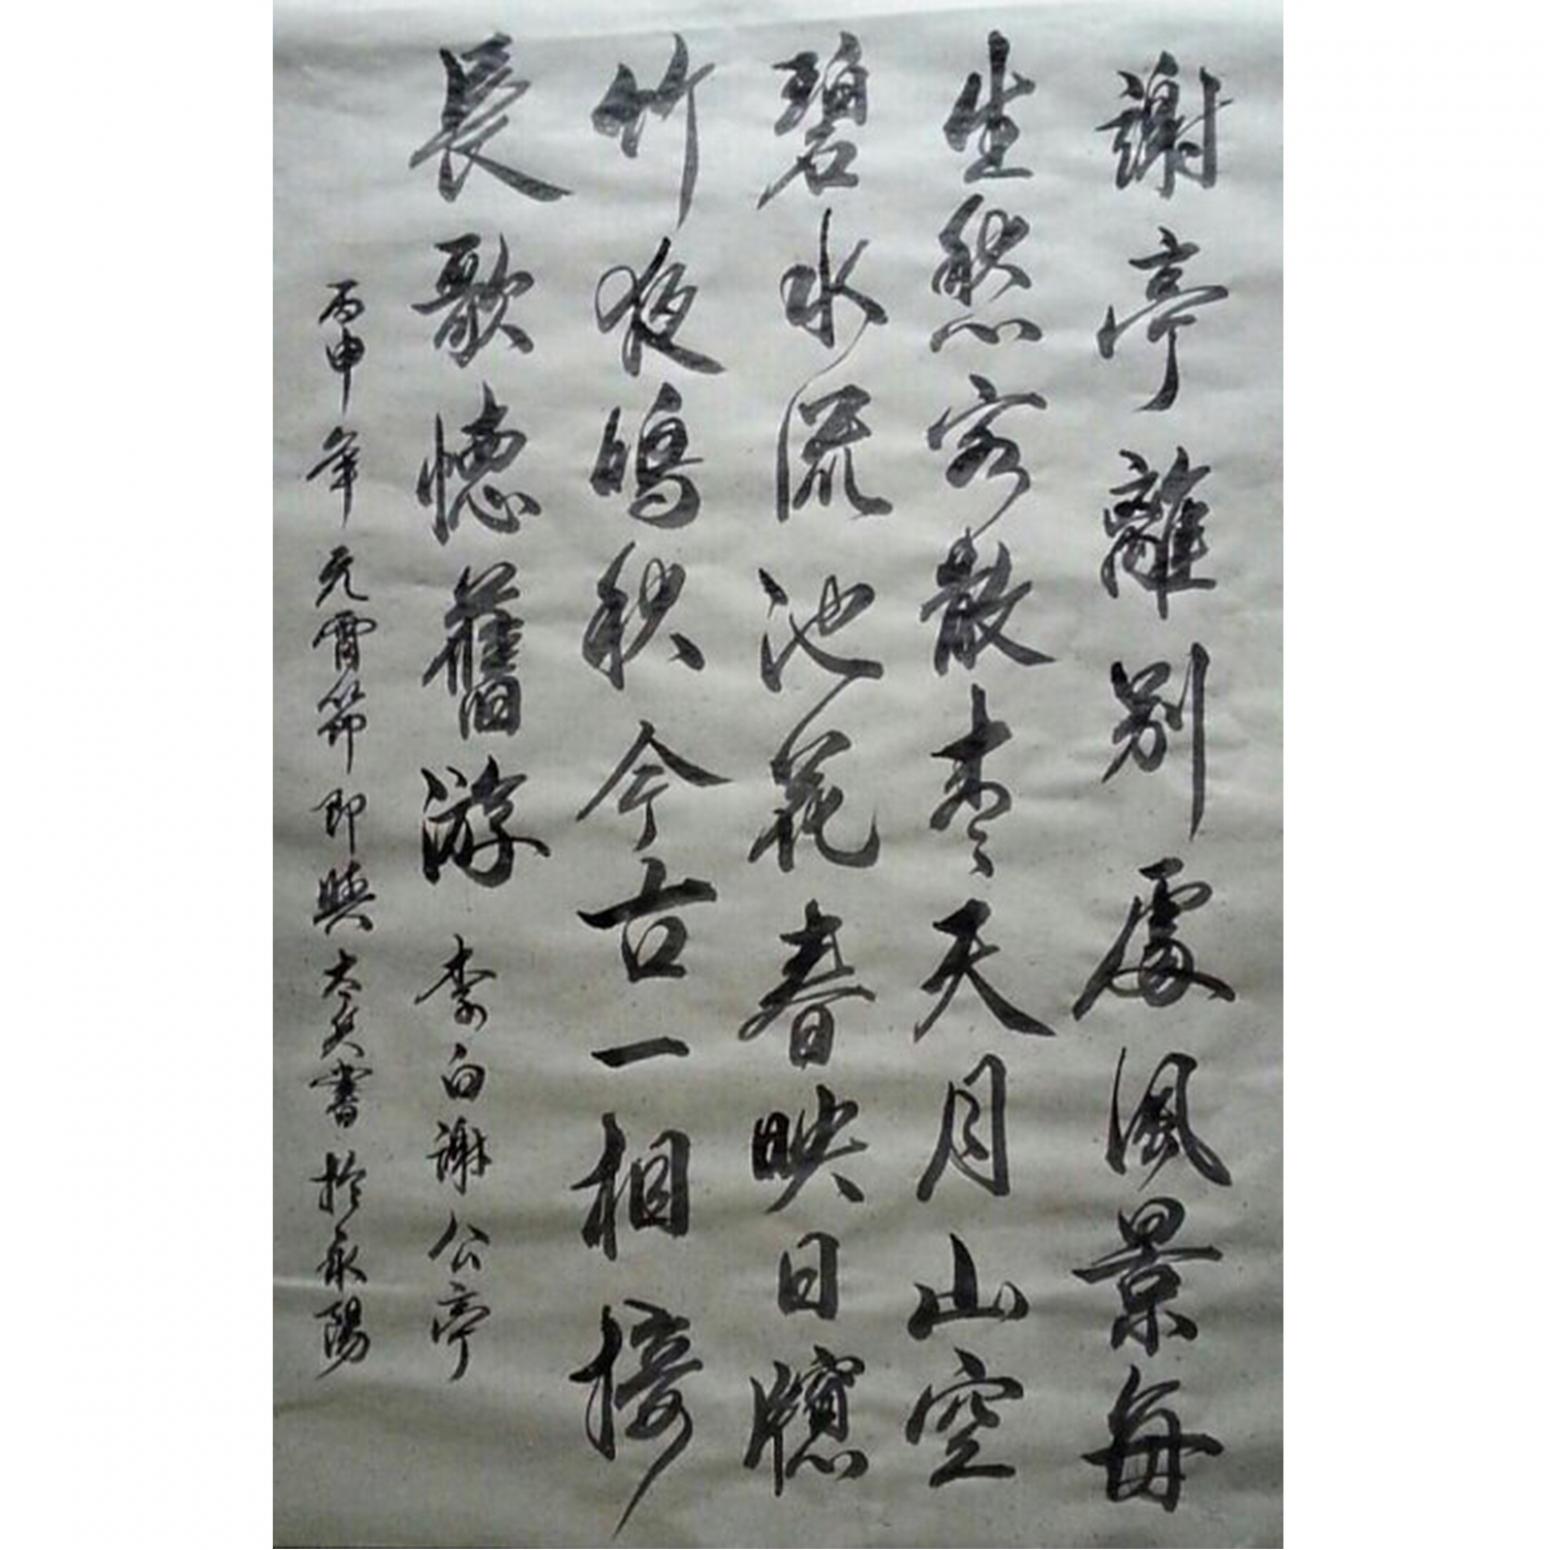 謝亭離别處風景每
生愁客散青天月山空
碧水流池花春映日牕
竹夜鳴秋今古一相接
長歌懷舊游 李白謝公亭
丙申年元宵節即興大書於永陽